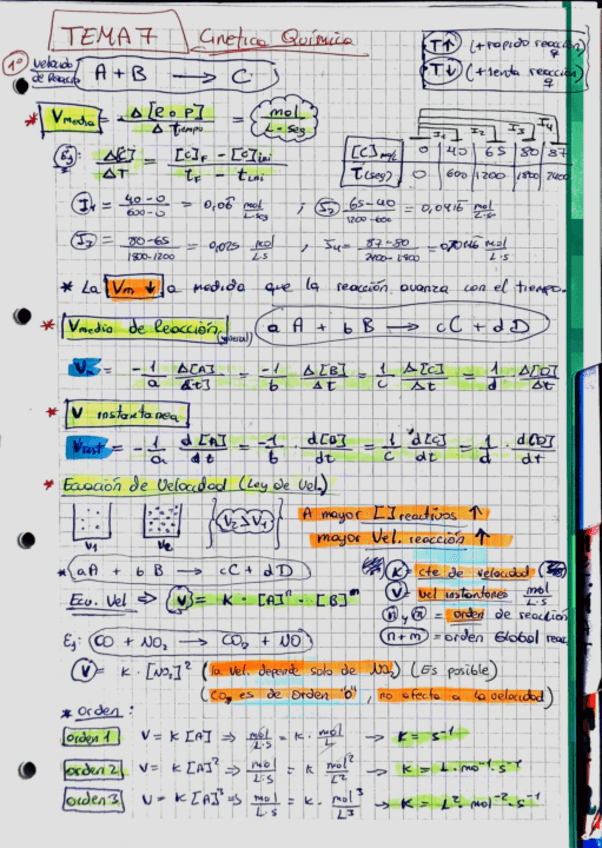 TEMA 7 Cinética Química
T↑ (+ rapido reacción)
T↓ (+ lenta reacción)
1º Velocidad de Reacción A + B ⟶ C
* Vmedia = Δ[R o P] / Δ tiempo = mol / L · seg
I1 I2 I3 I4
Ej: Δ[C] / ΔT = [C]F − [C]ini / tF − tini
[C] mol/L 0 40 65 80 87
T(seg) 0 600 1200 1800 2400
I1 = 40−0 / 600−0 = 0,06 mol / L·seg ; I2 65−40 / 1200−600 = 0,0416 mol / L·s
I3 = 80−65 / 1800−1200 = 0,025 mol / L·s , I4 = 87−80 / 2400−1800 = 0,0116 mol / L·s
* La Vm ↓ a medida que la reacción avanza con el tiempo.
* Vmedia de Reacción (general) a A + b B ⟶ cC + dD
Vm = −1/a Δ[A]/Δ[t] = −1/b · Δ[B]/Δt = 1/c · Δ[C]/Δt = 1/d · Δ[D]/Δt
* V instantanea
Vinst = −1/a · d[A]/dt = −1/b · d[B]/dt = 1/c · d[C]/dt = 1/d · d[D]/dt
* Ecuación de Velocidad (Ley de Vel.)
V1 V2 V2 > V1 A mayor [ ] reactivos ↑
mayor Vel. reacción ↑
* aA + b B ⟶ cC + dD
K = cte de velocidad
V = vel instantánea mol / L·s
Ecu. Vel ⇒ V = K · [A]^n · [B]^m
n y m = orden de reacción
n+m = orden Global reac
Ej: CO + NO2 ⟶ CO2 + NO
V = K · [NO2]^2 (la vel. depende solo de NO2) (Es posible)
(CO, es de orden "0", no afecta a la velocidad)
* Orden:
orden 1 V = K [A] ⇒ mol / L·s = K · mol / L → K = s^-1
orden 2 V = K [A]^2 ⇒ mol / L·s = K mol^2 / L^2 → K = L · mo^-1 · s^-1
orden 3 V = K [A]^3 ⇒ mol / L·s = K · mol^3 / L^3 → K = L^2 · mol^-2 · s^-1